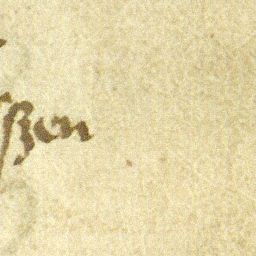 ßen